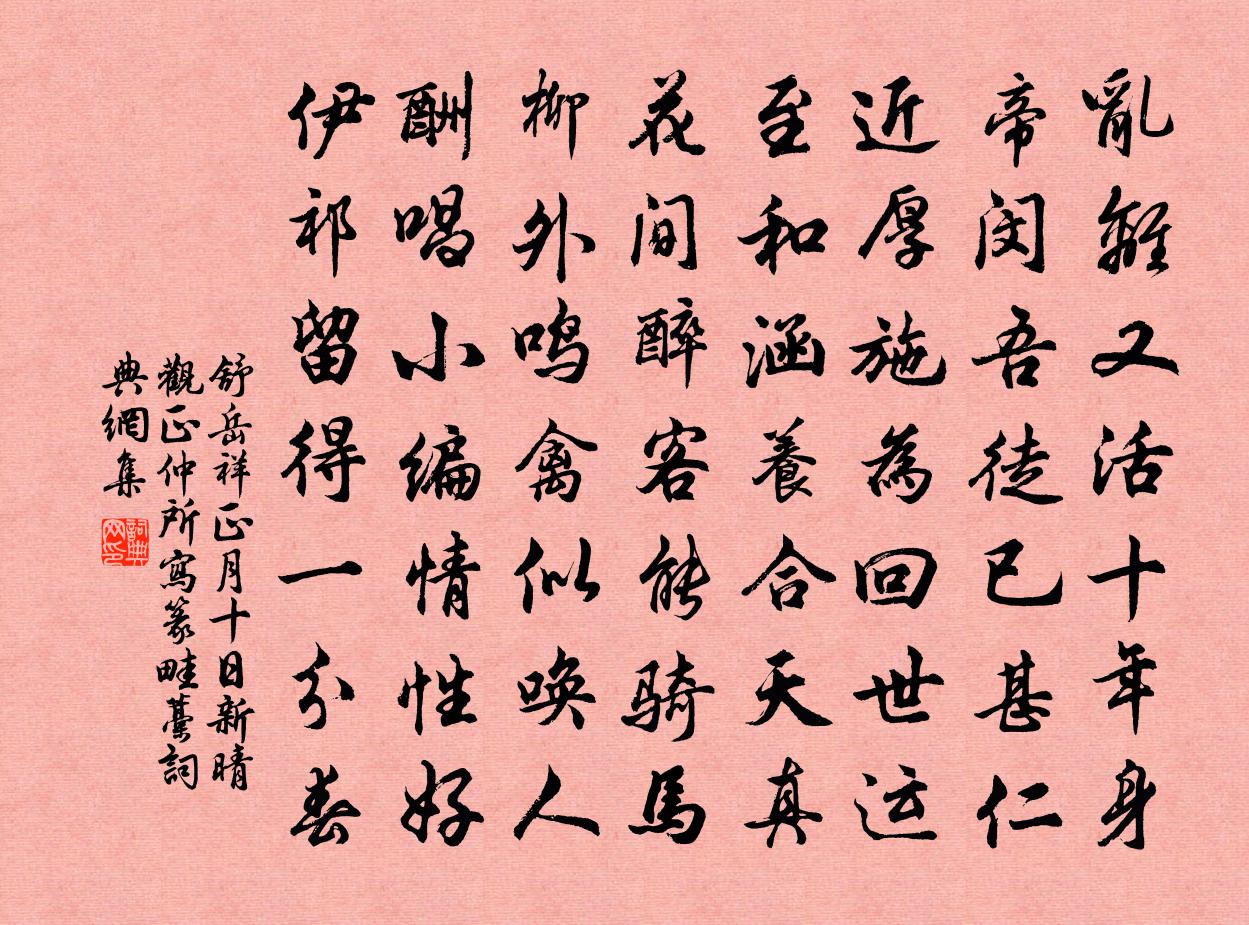 亂離又活十年身
帝闵吾徒已甚仁
近厚施為回世运
至和涵養合天真
花间醉客能騎馬
柳外鸣禽似唤人
酬唱小编情性好
伊祁留得一分春
舒岳祥正月十日新晴
觀正仲所寫篆畦藁詞
典網集
詞典网印